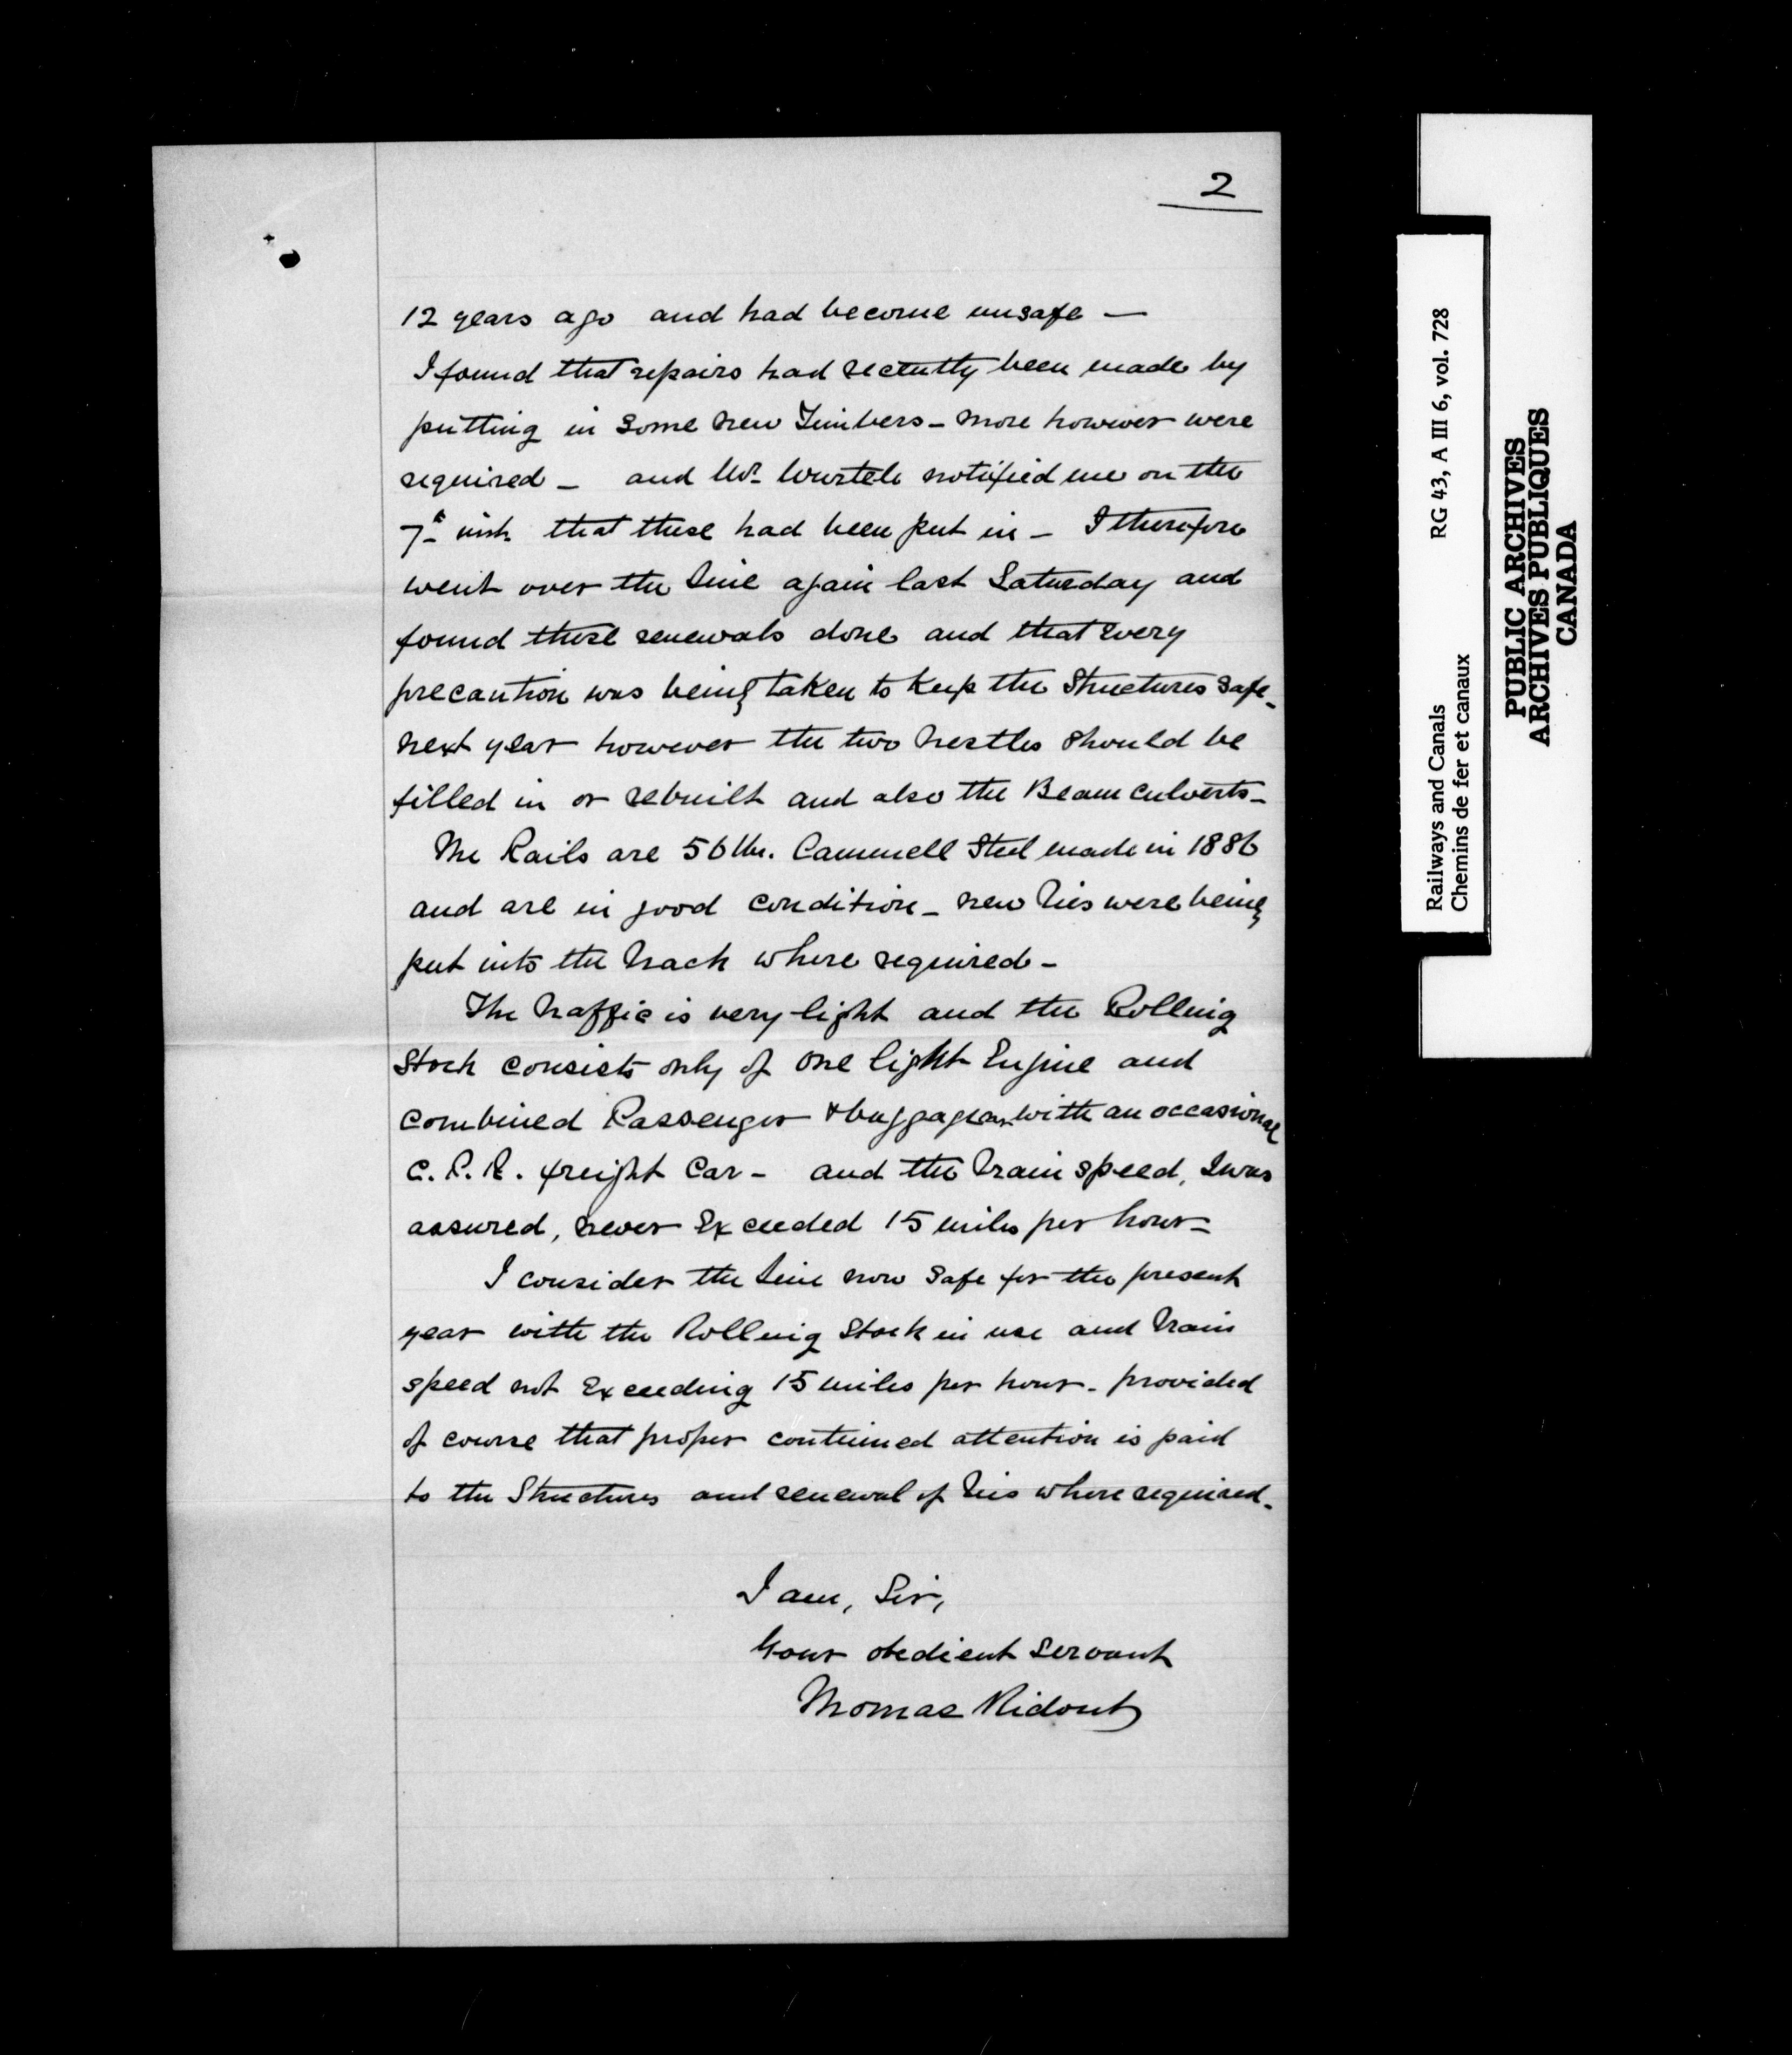 2
12 years ago and had become unsafe —
I found that repairs had recently been made by
putting in some new Timbers - more however were
required - and Mr. Wurtele notified me on the
7th inst. that these had been put in - I therefore
went over the line again last Saturday and
found these renewals done and that every
precaution was being taken to keep the Structures safe -
next year however the two Trestles should be
filled in or rebuilt and also the Beam Culverts -
The Rails are 56 lbs. Cammell Steel made in 1886
and are in good condition - new Ties were being
put into the Track where required -
The Traffic is very light and the Rolling
Stock consists only of one light Engine and
combined Passenger & baggage car with an occasional
C.P.R. freight Car - and the Train speed, I was
assured, never Exceeded 15 miles per hour -
I consider the line now safe for the present
year with the Rolling Stock in use and Train
speed not Exceeding 15 miles per hour - provided
of course that proper continued attention is paid
to the Structures and renewal of Ties where required -
I am, Sir,
Your obedient Servant
Thomas Ridout
Railways and Canals RG 43, A III 6, vol. 728
Chemins de fer et canaux
PUBLIC ARCHIVES
ARCHIVES PUBLIQUES
CANADA